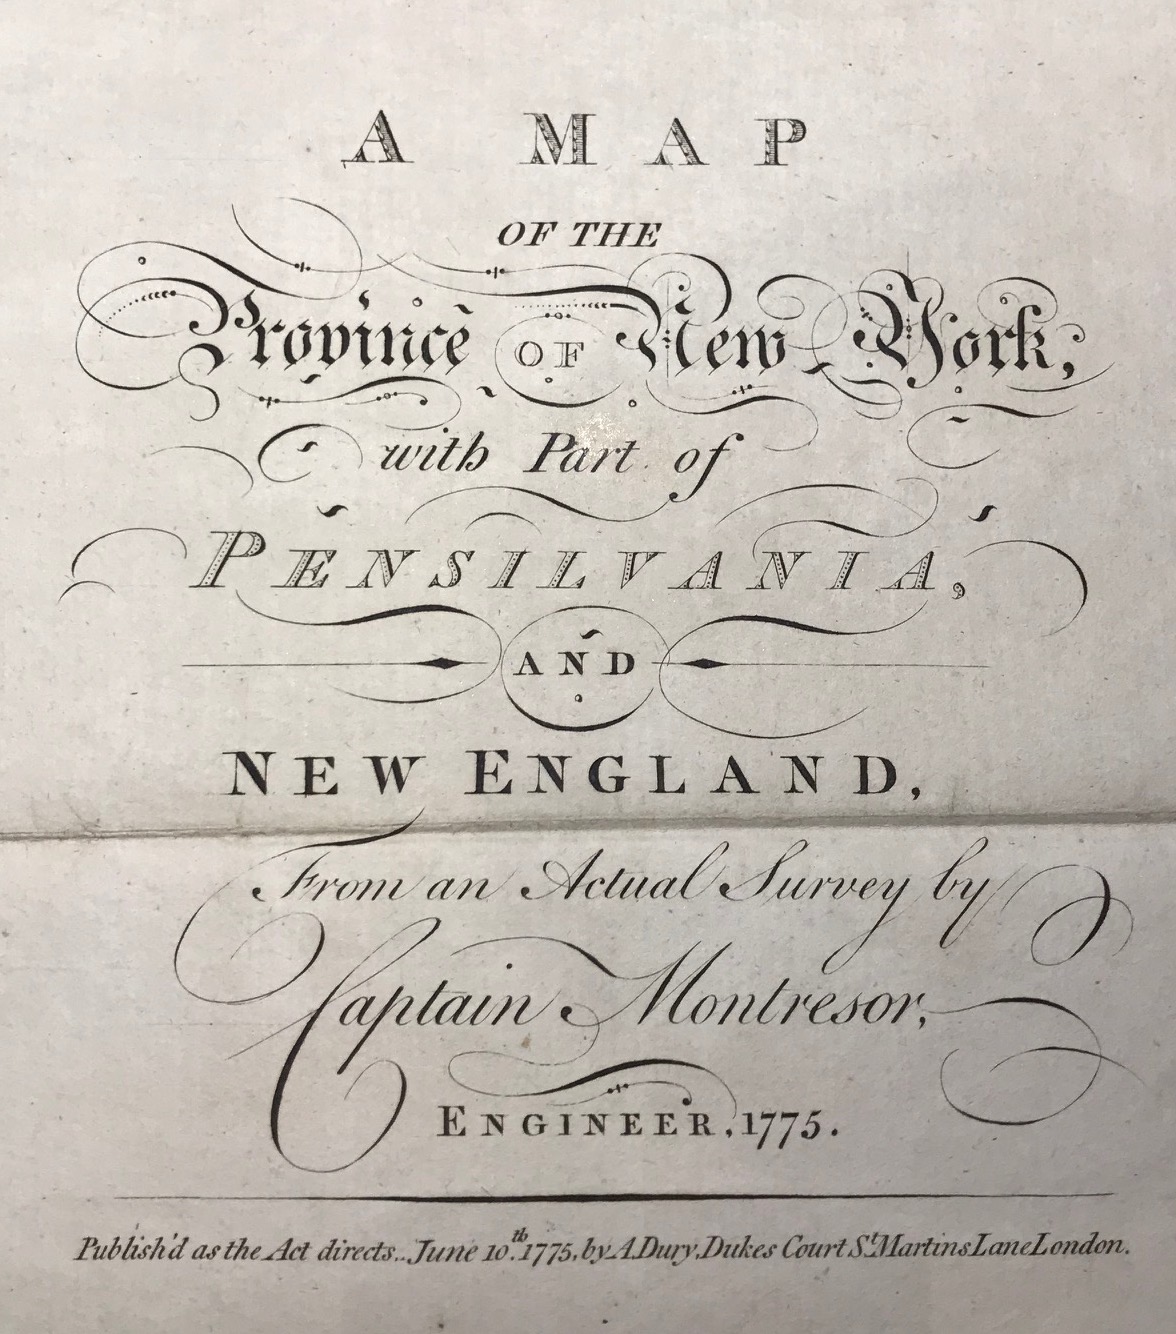 A MAP
OF THE
Province OF New York,
with Part of
PENSILVANIA,
AND
NEW ENGLAND,
From an Actual Survey by
Captain Montresor,
ENGINEER, 1775.
Publish'd as the Act directs... June 10.th 1775, by A. Dury, Dukes Court St. Martins Lane London.